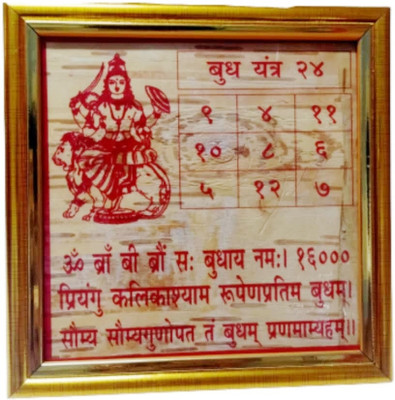 बुध यंत्र २४
९ ४ ११
१० ८ ६
५ १२ ७
ॐ ब्राँ बी ब्रौं सः बुधाय नमः। १६०००
प्रियंगु कलिकाश्याम रूपेणप्रतिम बुधम्।
सौम्य सौम्यगुणोपत तं बुधम् प्रणमाम्यहम्।।